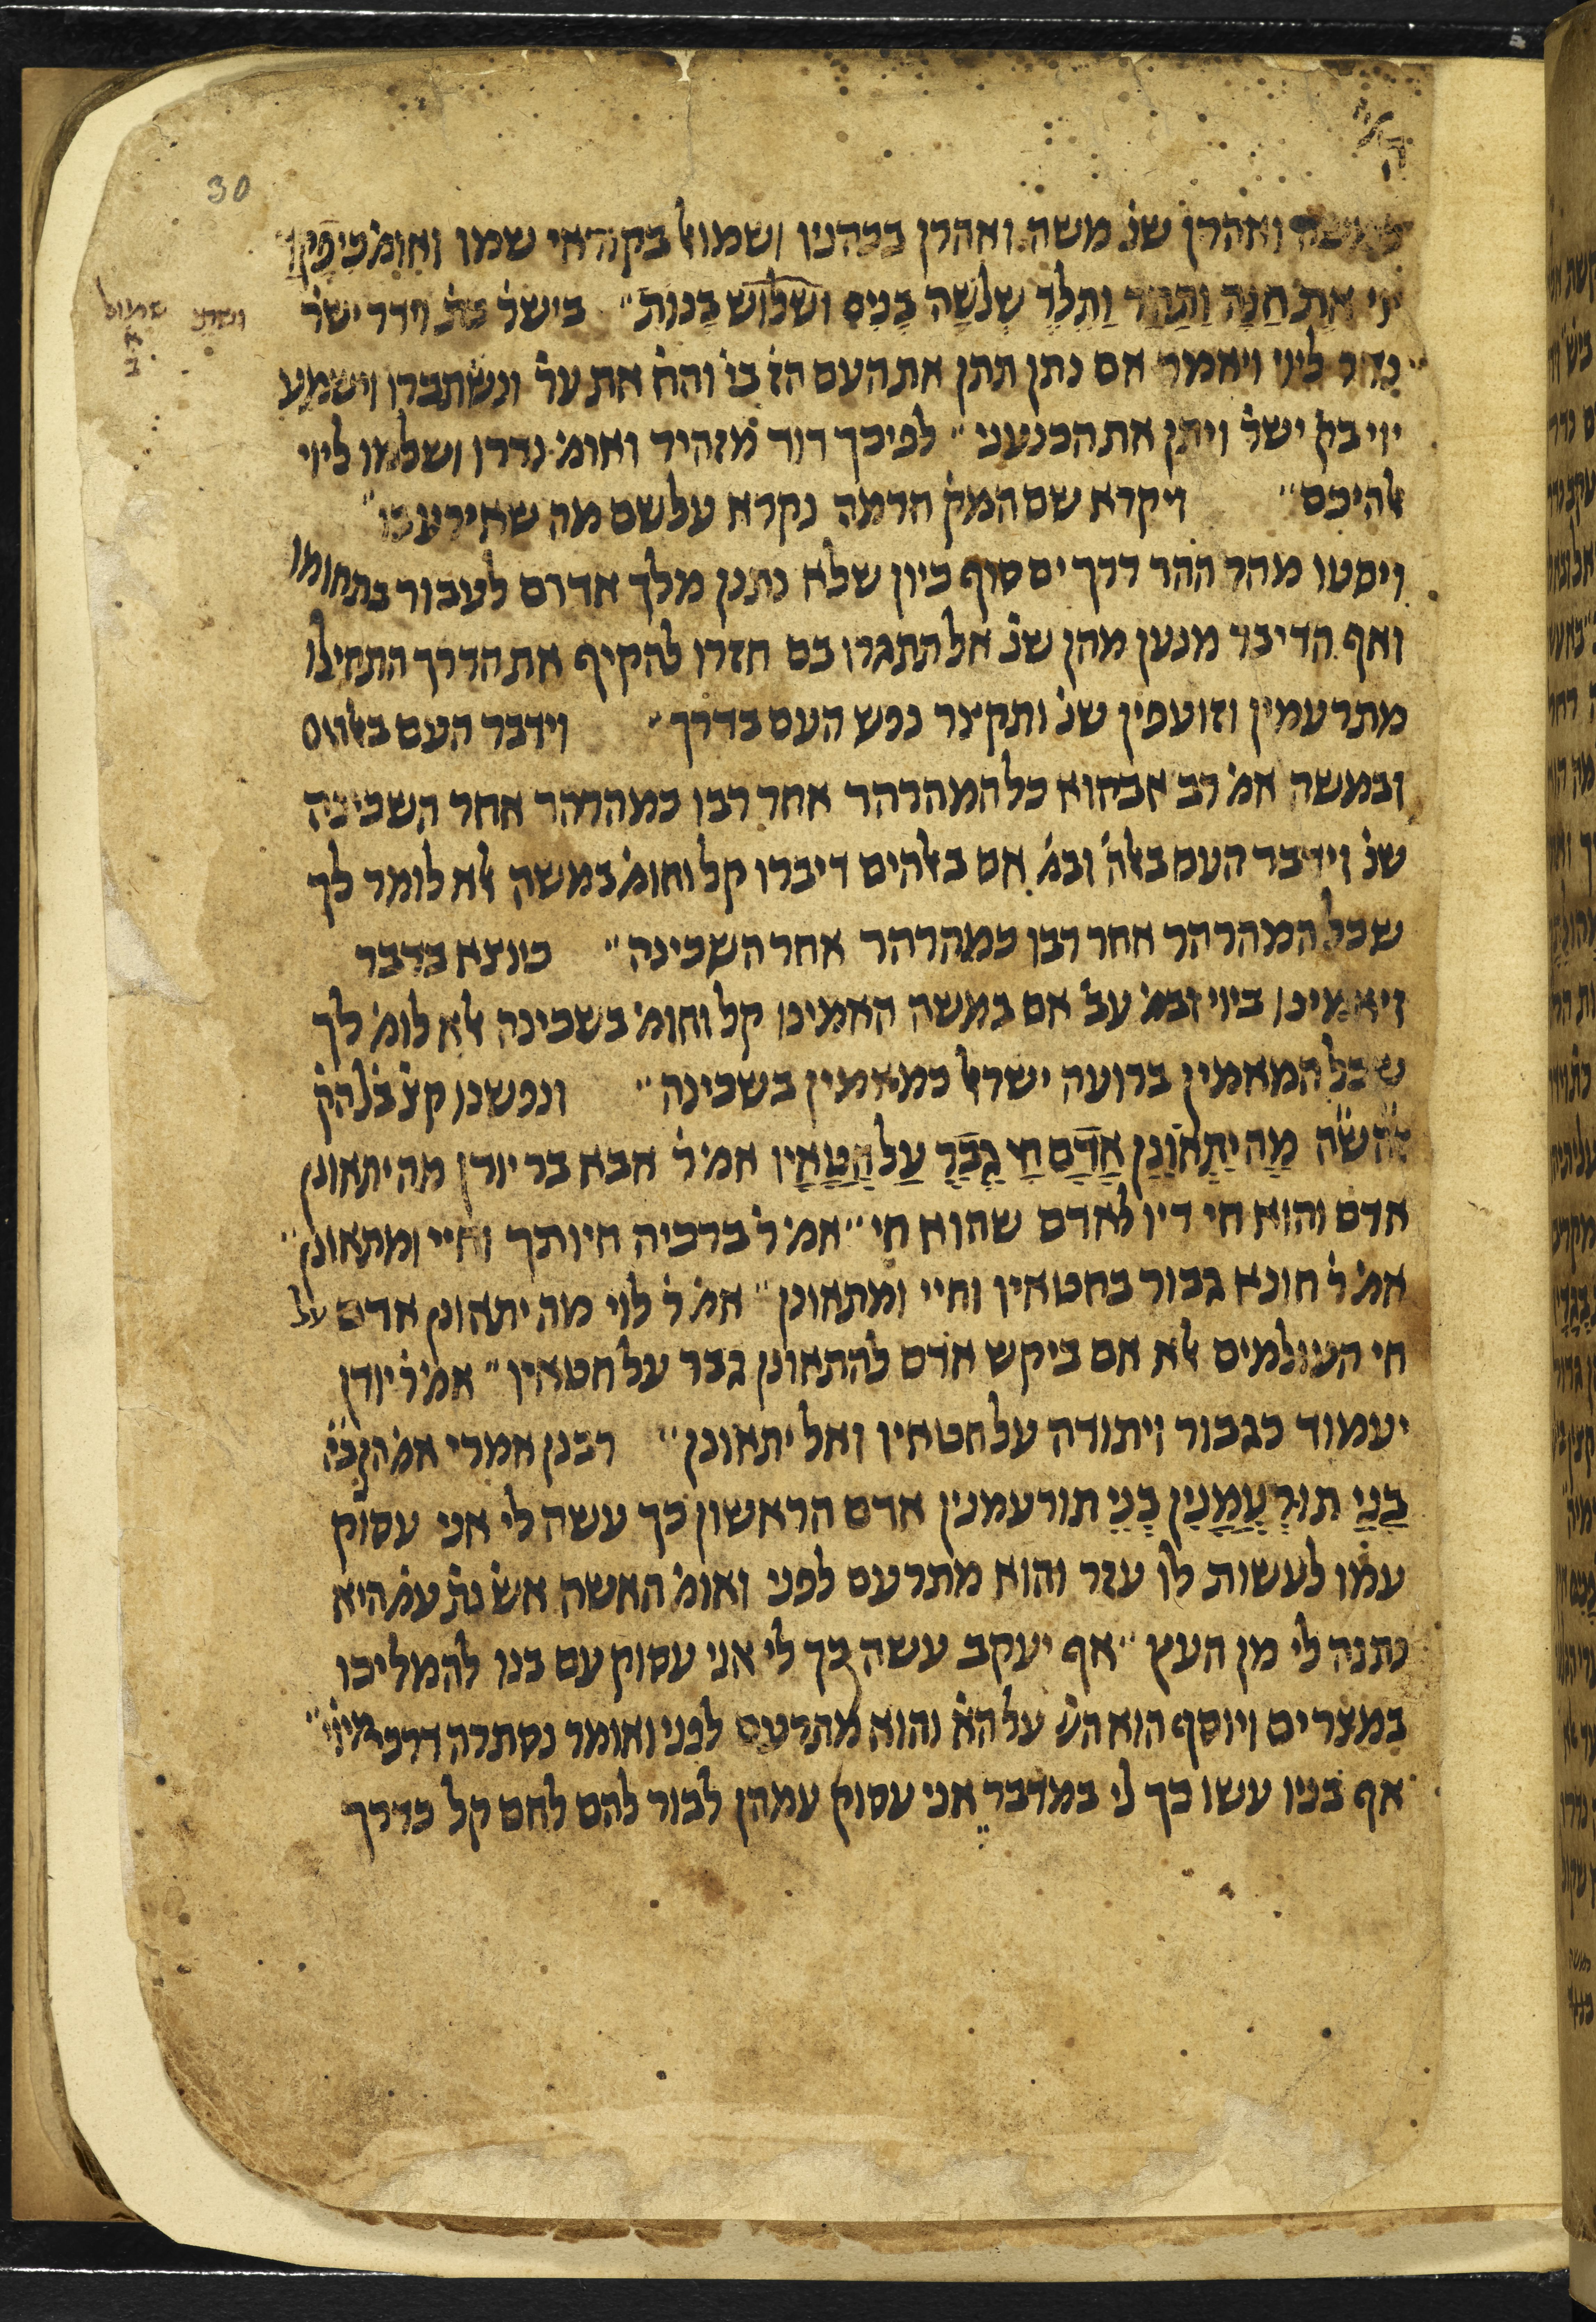 30
ואהרן שנ' משה ואהרן בכהניו ושמואל בקוראי שמו ואומ' כי פקד
יוי את חנה ותהר ותלד שלשה בנים ושלוש בנות" בישר' וידר ישר'
נדר ליוי ויאמר אם נתן תתן את העם הז' בי' והח' את ער' ונשתברו וישמע
יוי בק' ישר' ויתן את הכנעני" לפיכך דוד מזהיר ואומ' נדרו ושלמו ליוי
אלהיכם" ויקרא שם המק' חרמה נקרא על שם מה שאירע בו"
ויסעו מהר ההר דרך ים סוף כיון שלא נתנן מלך אדום לעבור בתחומו
ואף הדיבר מנען מהן שנ' אל תתגרו בם חזרו להקיף את הדרך התחילו
מתרעמין וזועפין שנ' ותקצר נפש העם בדרך" וידבר העם באלהים
ובמשה אמ' רב אבהוא כל המהרהר אחר רבו כמהרהר אחר השכינה
שנ' וידבר העם באלה' ובמ' אם באלהים דיברו קל וחומ' במשה אלא לומר לך
שכל המהרהר אחר רבו כמהרהר אחר השכינה" כיוצא בדבר
ויאמינו ביוי ובמ' עב' אם במשה האמינו קל וחומ' בשכינה אלא לומ' לך
שכל המאמין ברועה ישראל כמאמין בשכינה" ונפשנו קצ' בל' הק'
זהש"ה מה יתאונן אדם חי גבר על חטאיו אמ' ר' אבא בר יודן מה יתאונן
אדם והוא חי דיו לאדם שהוא חי" אמ' ר' ברכיה חיותך וחיי ומתאונן"
אמ' ר' חונא גבור בחטאין וחיי ומתאונן" אמ' ר' לוי מה יתאונן אדם על
חי העולמים אלא אם ביקש אדם להתאונן גבר על חטאיו" אמ' ר' יודן
יעמוד כגבור ויתודה על חטאיו ואל יתאונן" רבנן אמרי אמ' הק'ב'ה'
בני תורעמנין בני תורעמנין אדם הראשון כך עשה לי אני עסוק
עמו לעשות לו עזר והוא מתרעם לפני ואומ' האשה אש' נת' עמ' היא
נתנה לי מן העץ" אף יעקב עשה כך לי אני עסוק עם בנו להמליכו
במצרים ויוסף הוא הש' על הא' והוא מתרעם לפני ואומר נסתרה דרכי מיוי"
אף בניו עשו כך לי במדבר אני עסוק עמהן לבור להם לחם קל כדרך